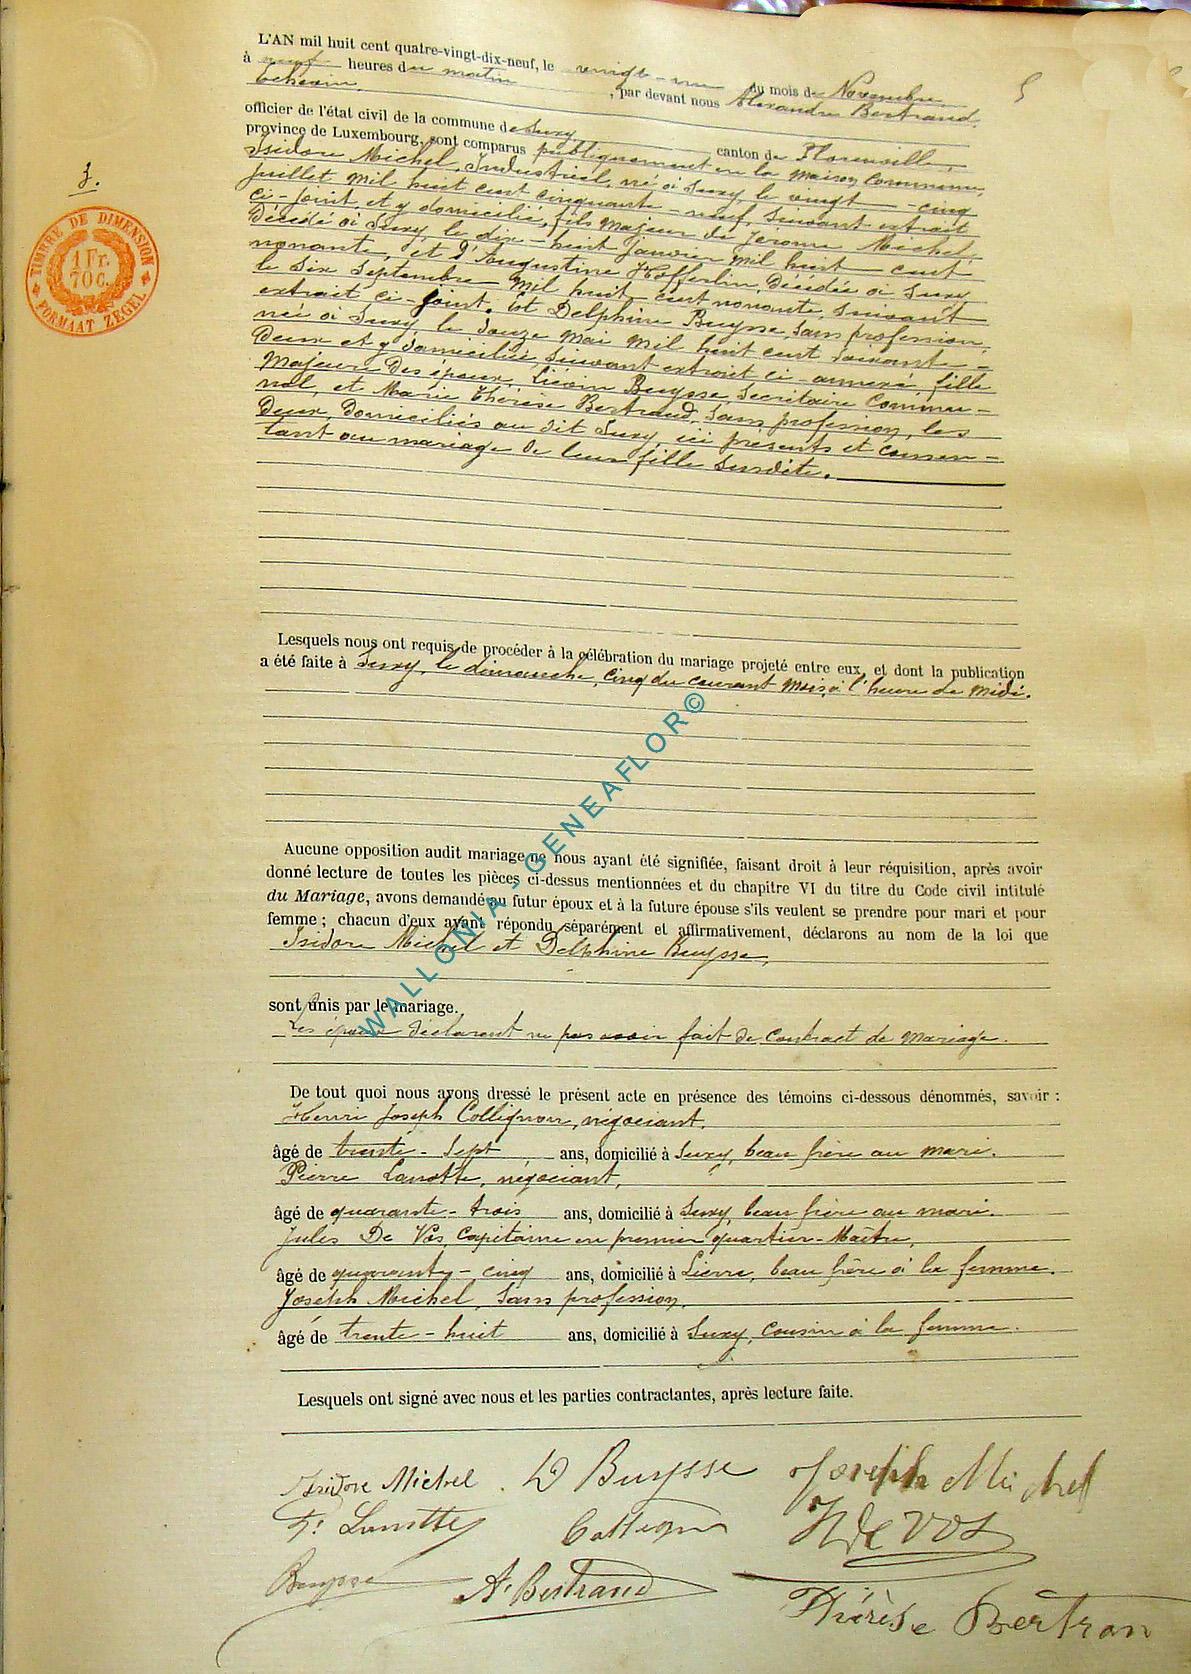 5
L'AN mil huit cent quatre-vingt-dix-neuf, le vingt-un du mois de Novembre
à neuf heures du matin, par devant nous Alexandre Bertrand,
Echevin
officier de l'état civil de la commune de Suxy canton de Florenville,
province de Luxembourg, sont comparus publiquement en la maison Commune,
Isidore Michel, Industriel, né à Suxy, le vingt-cinq
juillet mil huit cent cinquante-neuf, suivant extrait
ci-joint, et y domicilié, fils majeur de Jérome Michel,
décédé à Suxy le dix-huit Janvier mil huit cent
nonante, et d'Augustine Hofferlin, décédée à Suxy
le six Septembre mil huit cent nonante, suivant
extrait ci-joint. Et Delphine Buysse, sans profession,
née à Suxy, le douze Mai mil huit cent soixante-
deux et y domiciliée, suivant extrait ci-annexé, fille
majeure des époux, Liévin Buysse, Secrétaire Commu-
nal, et Marie Thérèse Bertrand, sans profession, les
deux domiciliés au dit Suxy, ici présents et consen-
tant au mariage de leur fille susdite.
3.
TIMBRE DE DIMENSION
1 Fr.
70 C.
FORMAAT ZEGEL
Lesquels nous ont requis de procéder à la célébration du mariage projeté entre eux, et dont la publication
a été faite à Suxy, le dimanche, cinq du courant mois, à l'heure de midi.
Aucune opposition audit mariage ne nous ayant été signifiée, faisant droit à leur réquisition, après avoir
donné lecture de toutes les pièces ci-dessus mentionnées et du chapitre VI du titre du Code civil intitulé
du Mariage, avons demandé au futur époux et à la future épouse s'ils veulent se prendre pour mari et pour
femme ; chacun d'eux ayant répondu séparément et affirmativement, déclarons au nom de la loi que
Isidore Michel et Delphine Buysse,
sont unis par le mariage.
Les époux déclarent ne pas avoir fait de contract de mariage.
De tout quoi nous avons dressé le présent acte en présence des témoins ci-dessous dénommés, savoir :
Henri Joseph Collignon, négociant,
âgé de trente-sept ans, domicilié à Suxy, beau frère au mari.
Pierre Lanotte, négociant,
âgé de quarante-trois ans, domicilié à Suxy, beau frère au mari.
Jules De Vos, Capitaine en premier quartier-Maître,
âgé de quarante-cinq ans, domicilié à Lierre, beau frère à la femme.
Joseph Michel, sans profession,
âgé de trente-huit ans, domicilié à Suxy, cousin à la femme.
Lesquels ont signé avec nous et les parties contractantes, après lecture faite.
Isidore Michel D Buysse Joseph Michel
P. Lanotte Collignon De VOS
Buysse A. Bertrand Thérèse Bertran
WALLONIA - GENEAFLOR©